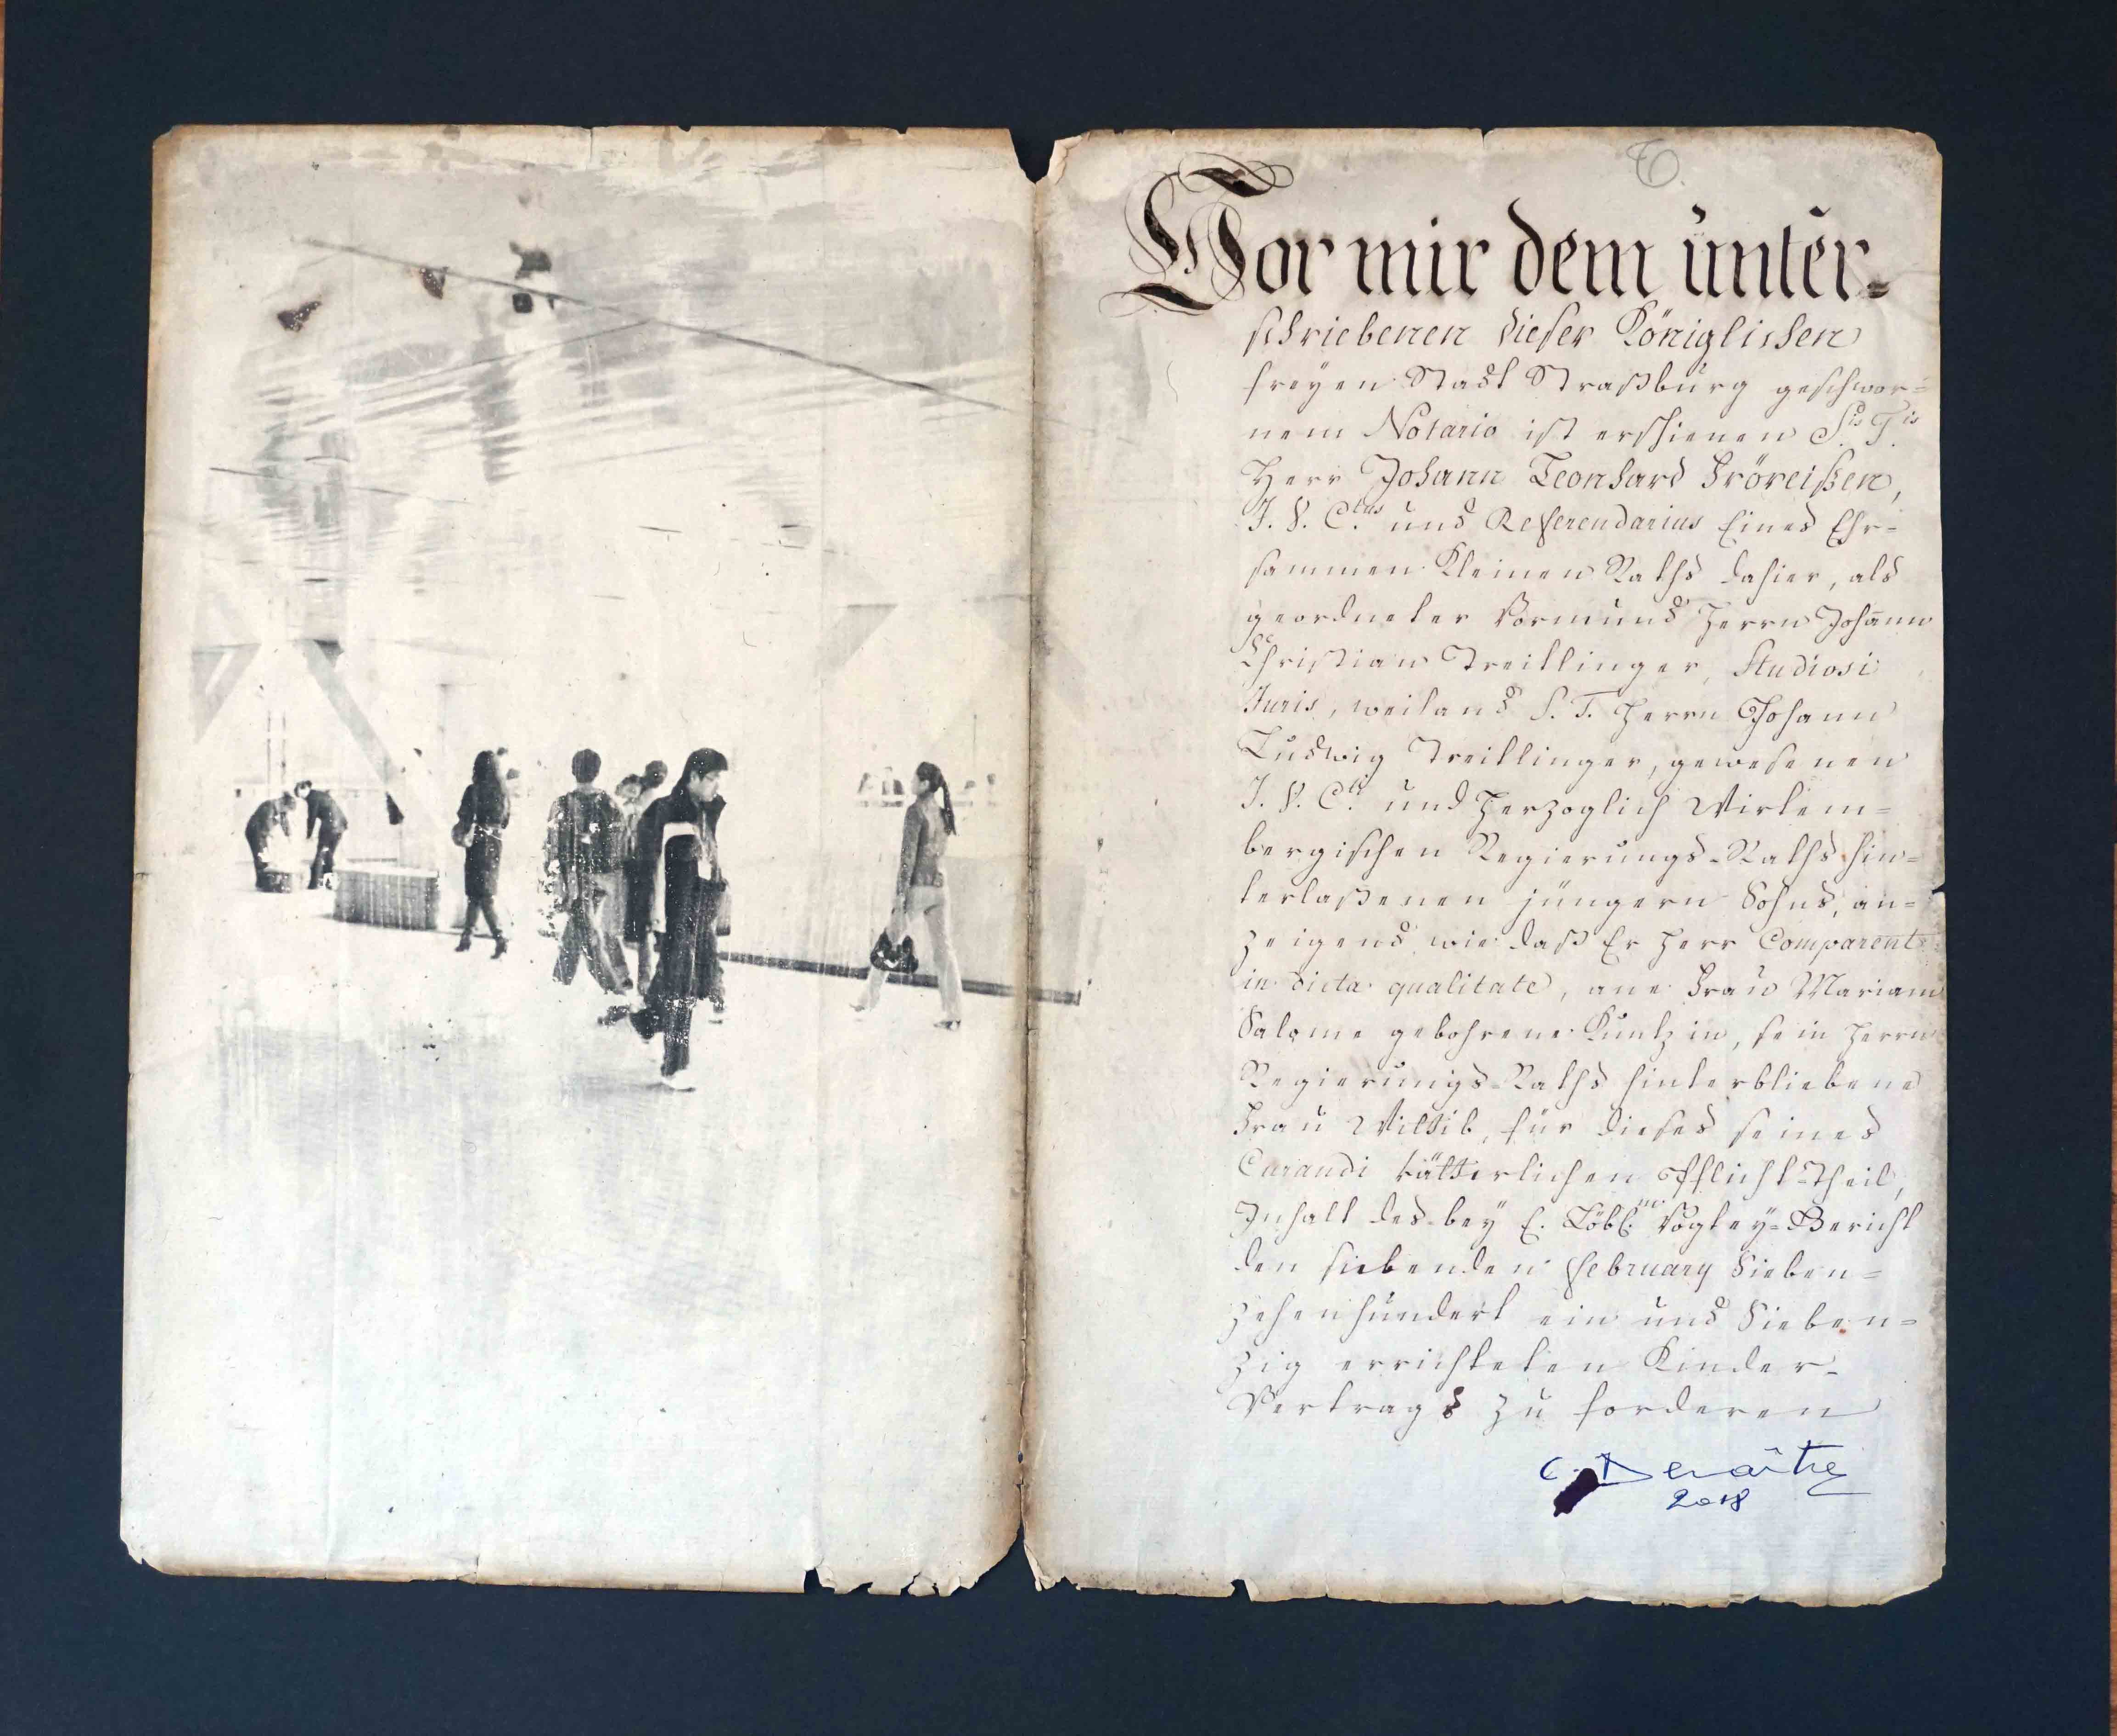 Vor mir dem unter-
schriebenen dieser Königlichen
freyen Stadt Straßburg geschwor-
nem Notario ist erschienen S.is T.is
Herr Johann Leonhard Fröreißen,
J. V. C.tus und Referendarius Eines Ehr-
sammen Kleinen Raths dahier, als
geordneter Vormund Herrn Johann
Christian Treitlinger, Studiosi
Juris, weiland S. T. Herrn Johann
Ludwig Treitlinger, gewesenen
J. V. C.ti und Herzoglich Wirtem-
bergischen Regierungs-Raths hin-
terlaßenen jüngern Sohns, an-
zeigend wie daß Er Herr Comparent
in dicta qualitate, ane Frau Mariam
Salome gebohrene Kuntzin, sein Herrn
Regierungs-Raths hinterbliebene
Frau Wittib, für dieses seines
Curandi vätterlichen Pflicht-Theil,
Inhalt des bey E. Löbl. Vogtey-Gericht
den siebenden February Sieben-
zehenhundert ein und Sieben-
zig errichteten Kinder-
Vertrags zu forderen
2018